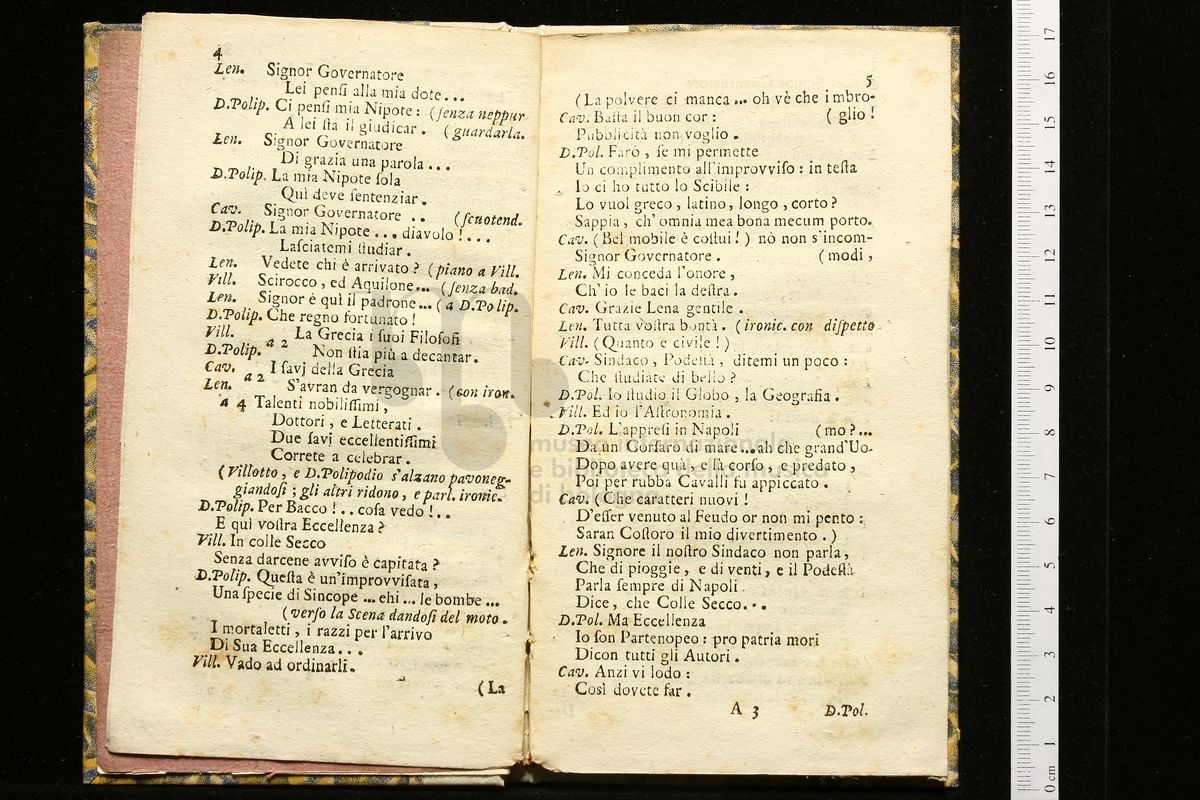 4
Len. Signor Governatore
Lei penſi alla mia dote...
D.Polip. Ci penſi mia Nipote: (ſenza neppur
A lei ſta il giudicar. (guardarla.
Len. Signor Governatore
Di grazia una parola...
D.Polip. La mia Nipote ſola
Quì deve ſentenziar.
Cav. Signor Governatore .. (ſcuotend.
D.Polip. La mia Nipote... diavolo!...
Laſciatemi ſtudiar.
Len. Vedete chi è arrivato? (piano a Vill.
Vill. Scirocco, ed Aquilone... (ſenza bad.
Len. Signor è quì il padrone... (a D.Polip.
D.Polip. Che regno fortunato!
Vill. a 2 La Grecia i ſuoi Filoſofi
D.Polip. Non ſtia più a decantar.
Cav. a 2 I ſavj della Grecia
Len. S'avran da vergognar. (con iron.
a 4 Talenti nobiliſſimi,
Dottori, e Letterati.
Due ſavj eccellentiſſimi
Correte a celebrar.
(Villotto, e D.Polipodio s'alzano pavoneg-
giandoſi; gli altri ridono, e parl. ironic.
D.Polip. Per Bacco!.. coſa vedo!..
E quì voſtra Eccellenza?
Vill. In colle Secco
Senza darcene avviſo è capitata?
D.Polip. Queſta è un'improvviſata,
Una ſpecie di Sincope ... ehi ... le bombe ...
(verſo la Scena dandoſi del moto.
I mortaletti, i razzi per l'arrivo
Di Sua Eccellenza...
Vill. Vado ad ordinarli.
(La
5
(La polvere ci manca ... oh vè che imbro-
Cav. Baſta il buon cor: (glio!
Pubblicità non voglio.
D.Pol. Farò, ſe mi permette
Un complimento all'improvviſo: in teſta
Io ci ho tutto lo Scibile:
Lo vuol greco, latino, longo, corto?
Sappia, ch'omnia mea bona mecum porto.
Cav. (Bel mobile è coſtui!) nò non s'incom-
Signor Governatore. (modi,
Len. Mi conceda l'onore,
Ch'io le baci la deſtra.
Cav. Grazie Lena gentile.
Len. Tutta voſtra bontà. (ironic. con diſpetto
Vill. (Quanto è civile!)
Cav. Sindaco, Podeſtà, ditemi un poco:
Che ſtudiate di bello?
D.Pol. Io ſtudio il Globo, la Geografia.
Vill. Ed io l'Aſtronomia.
D.Pol. L'appreſi in Napoli (mo?...
Da un Corſaro di mare...ah che grand'Uo-
Dopo avere quà, e là corſo, e predato,
Poi per rubba Cavalli fu appiccato.
Cav. (Che caratteri nuovi!
D'eſſer venuto al Feudo or non mi pento:
Saran Coſtoro il mio divertimento.)
Len. Signore il noſtro Sindaco non parla,
Che di pioggie, e di venti, e il Podeſtà
Parla ſempre di Napoli.
Dice, che Colle Secco...
D.Pol. Ma Eccellenza
Io ſon Partenopeo: pro patria mori
Dicon tutti gli Autori.
Cav. Anzi vi lodo:
Così dovete far.
A 3 D.Pol.
0 cm 1 2 3 4 5 6 7 8 9 10 11 12 13 14 15 16 17